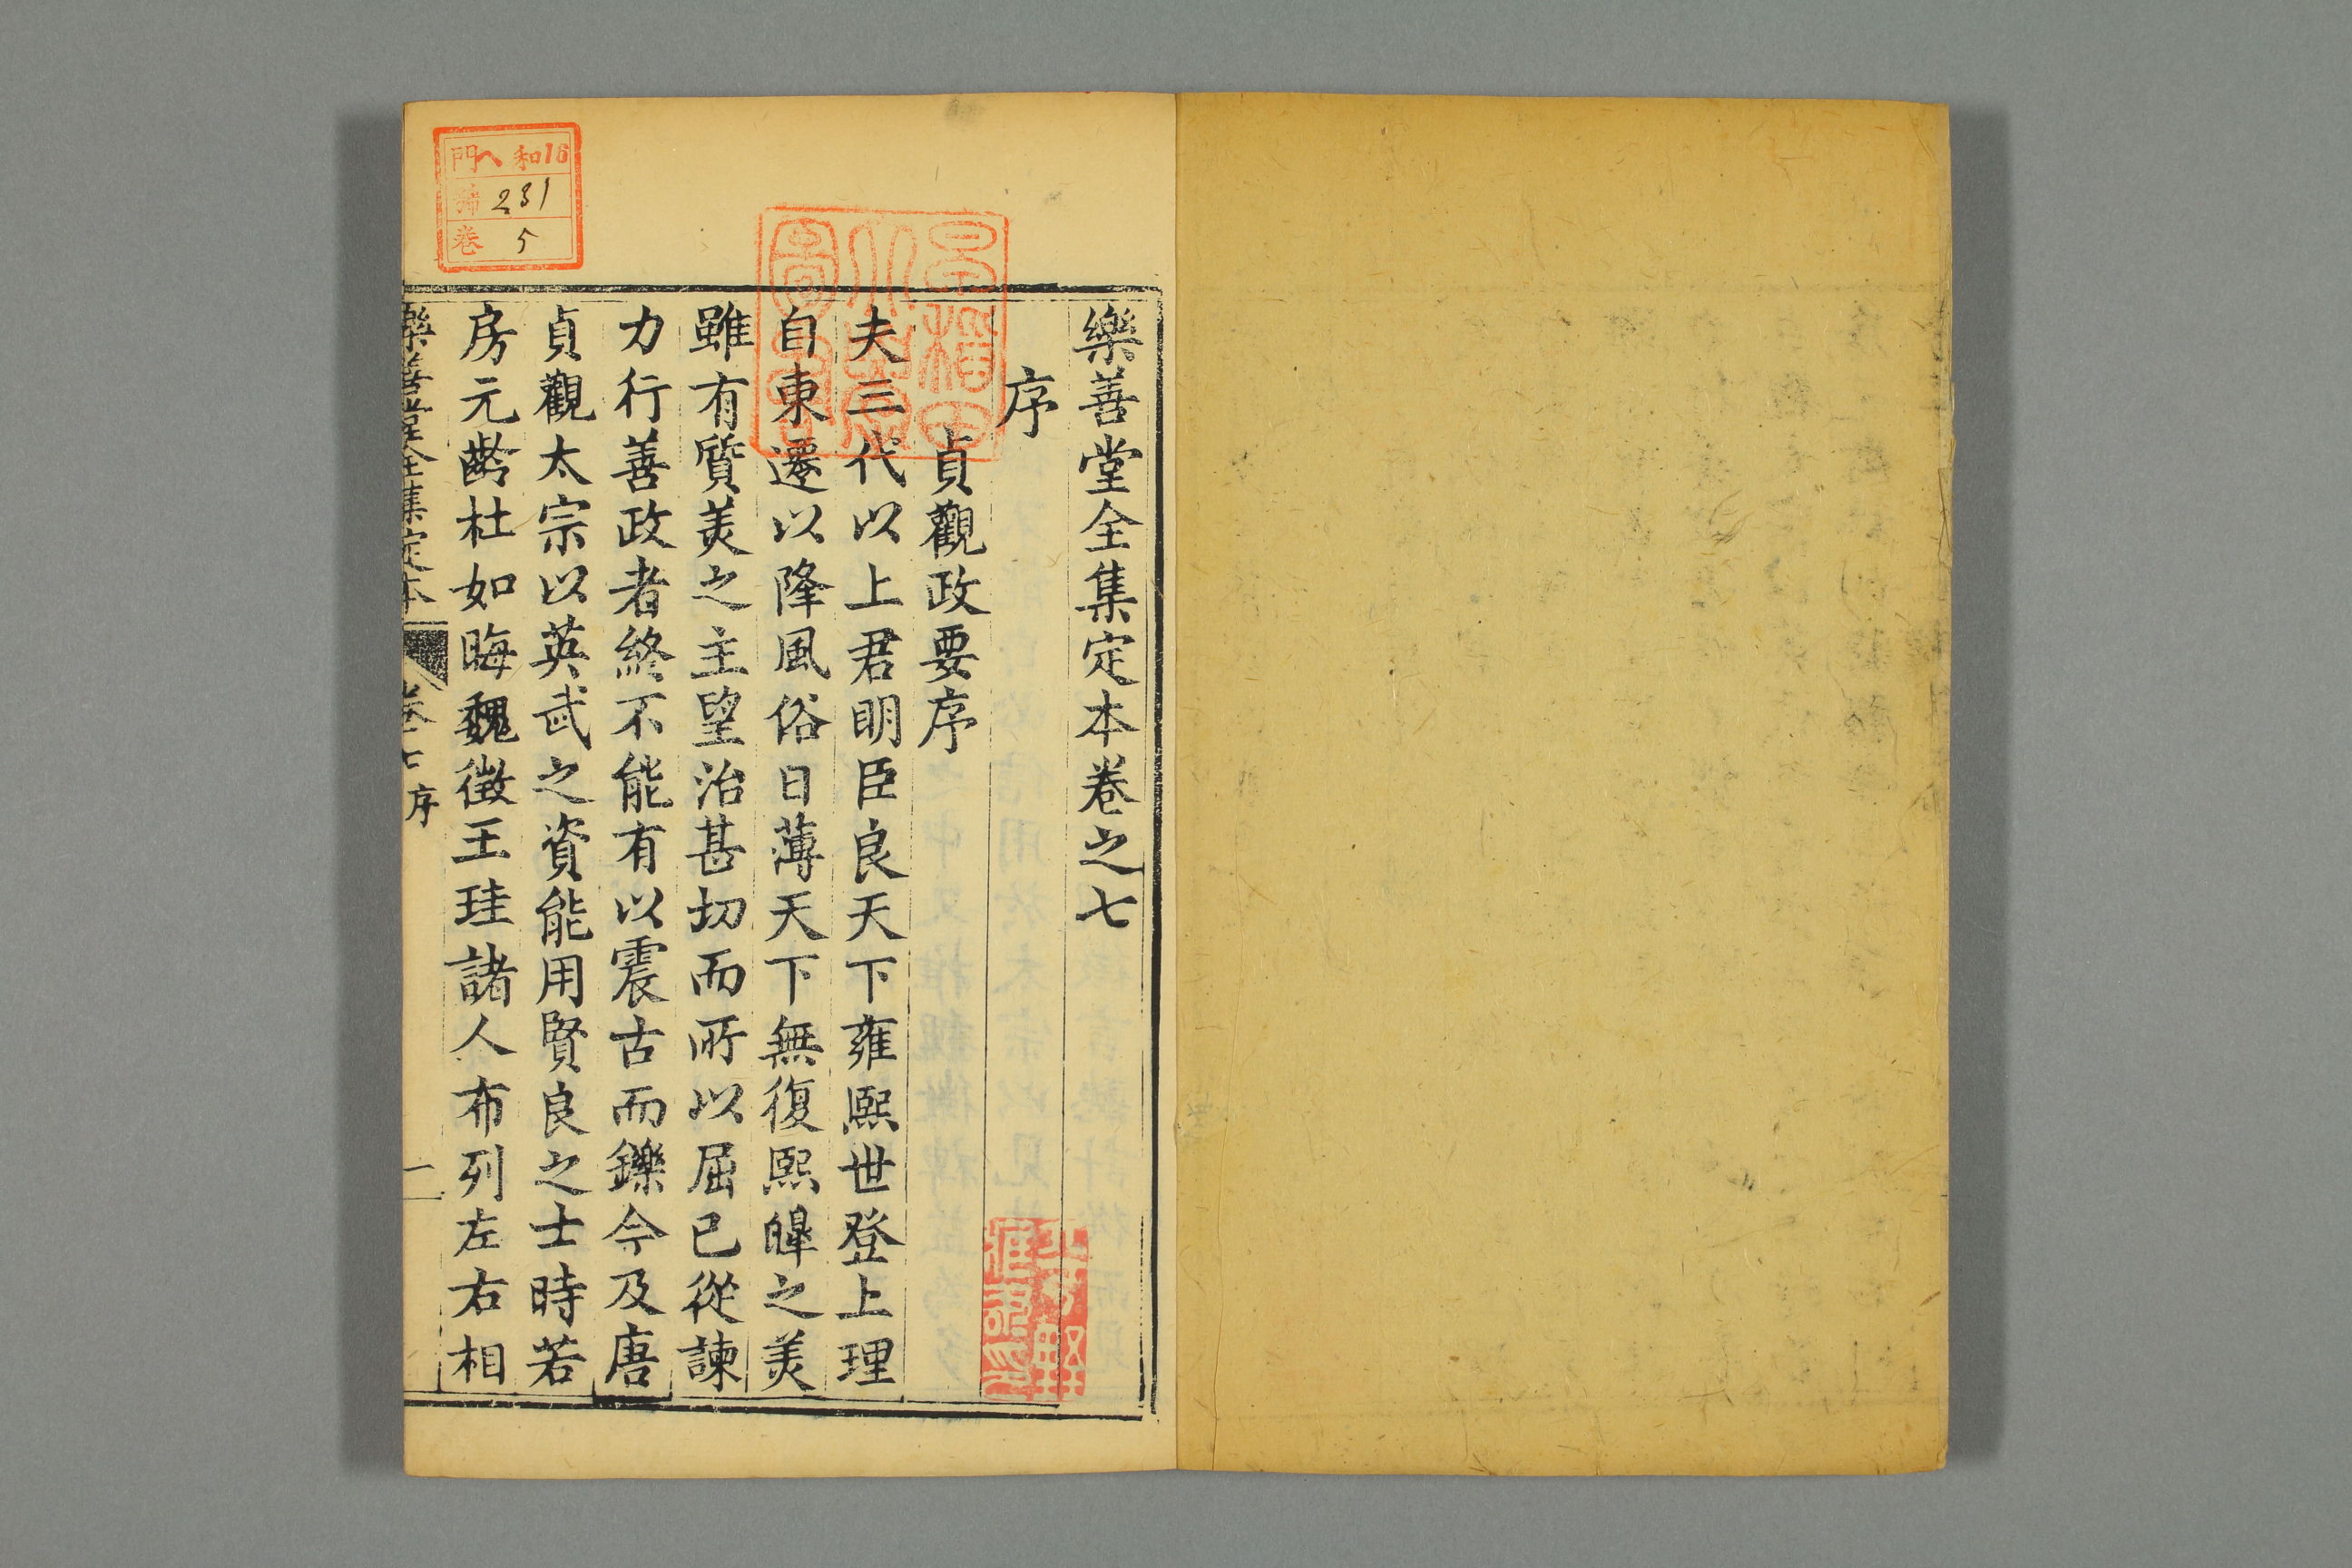 樂善堂全集定本卷之七
序
貞觀政要序
夫三代以上君明臣良天下雍熙世登上理
自東遷以降風俗日薄天下無復熙皞之美
雖有質美之主望治甚切而所以屈已從諫
力行善政者終不能有以震古而鑠今及唐
貞觀太宗以英武之資能用賢良之士時若
房元齡杜如晦魏徵王珪諸人布列左右相
樂善堂全集定本 卷七 序 一
門ヘ和16
號 231
卷 5